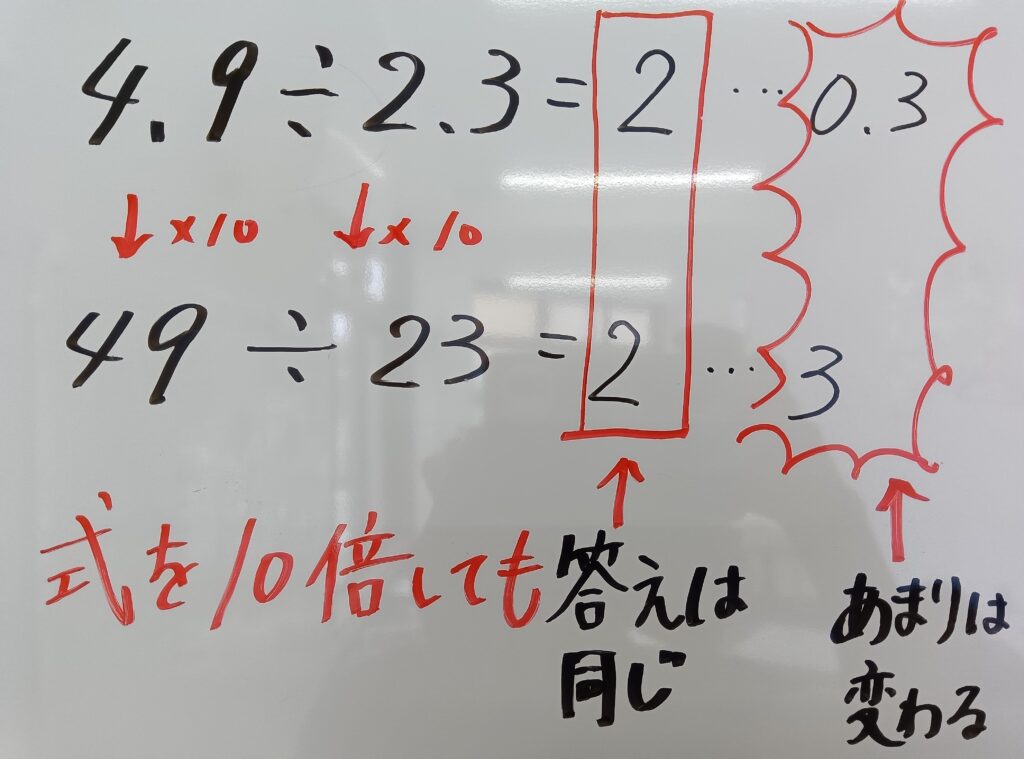 4.9÷2.3=2…0.3
↓×10 ↓×10
49÷23=2…3
↑ ↑
式を10倍しても答えは
同じ
あまりは
変わる